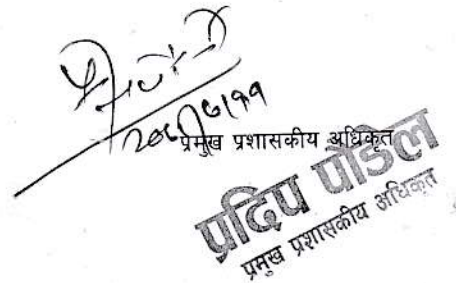 प्रमुख प्रशासकीय अधिकृत
प्रदिप पौडेल
प्रमुख प्रशासकीय अधिकृत